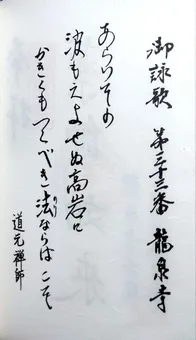 御詠歌 第三十三番 龍泉寺
あらいその
波もえよせぬ高岩に
かきもつくべき法ならばこそ
のり
道元禅師